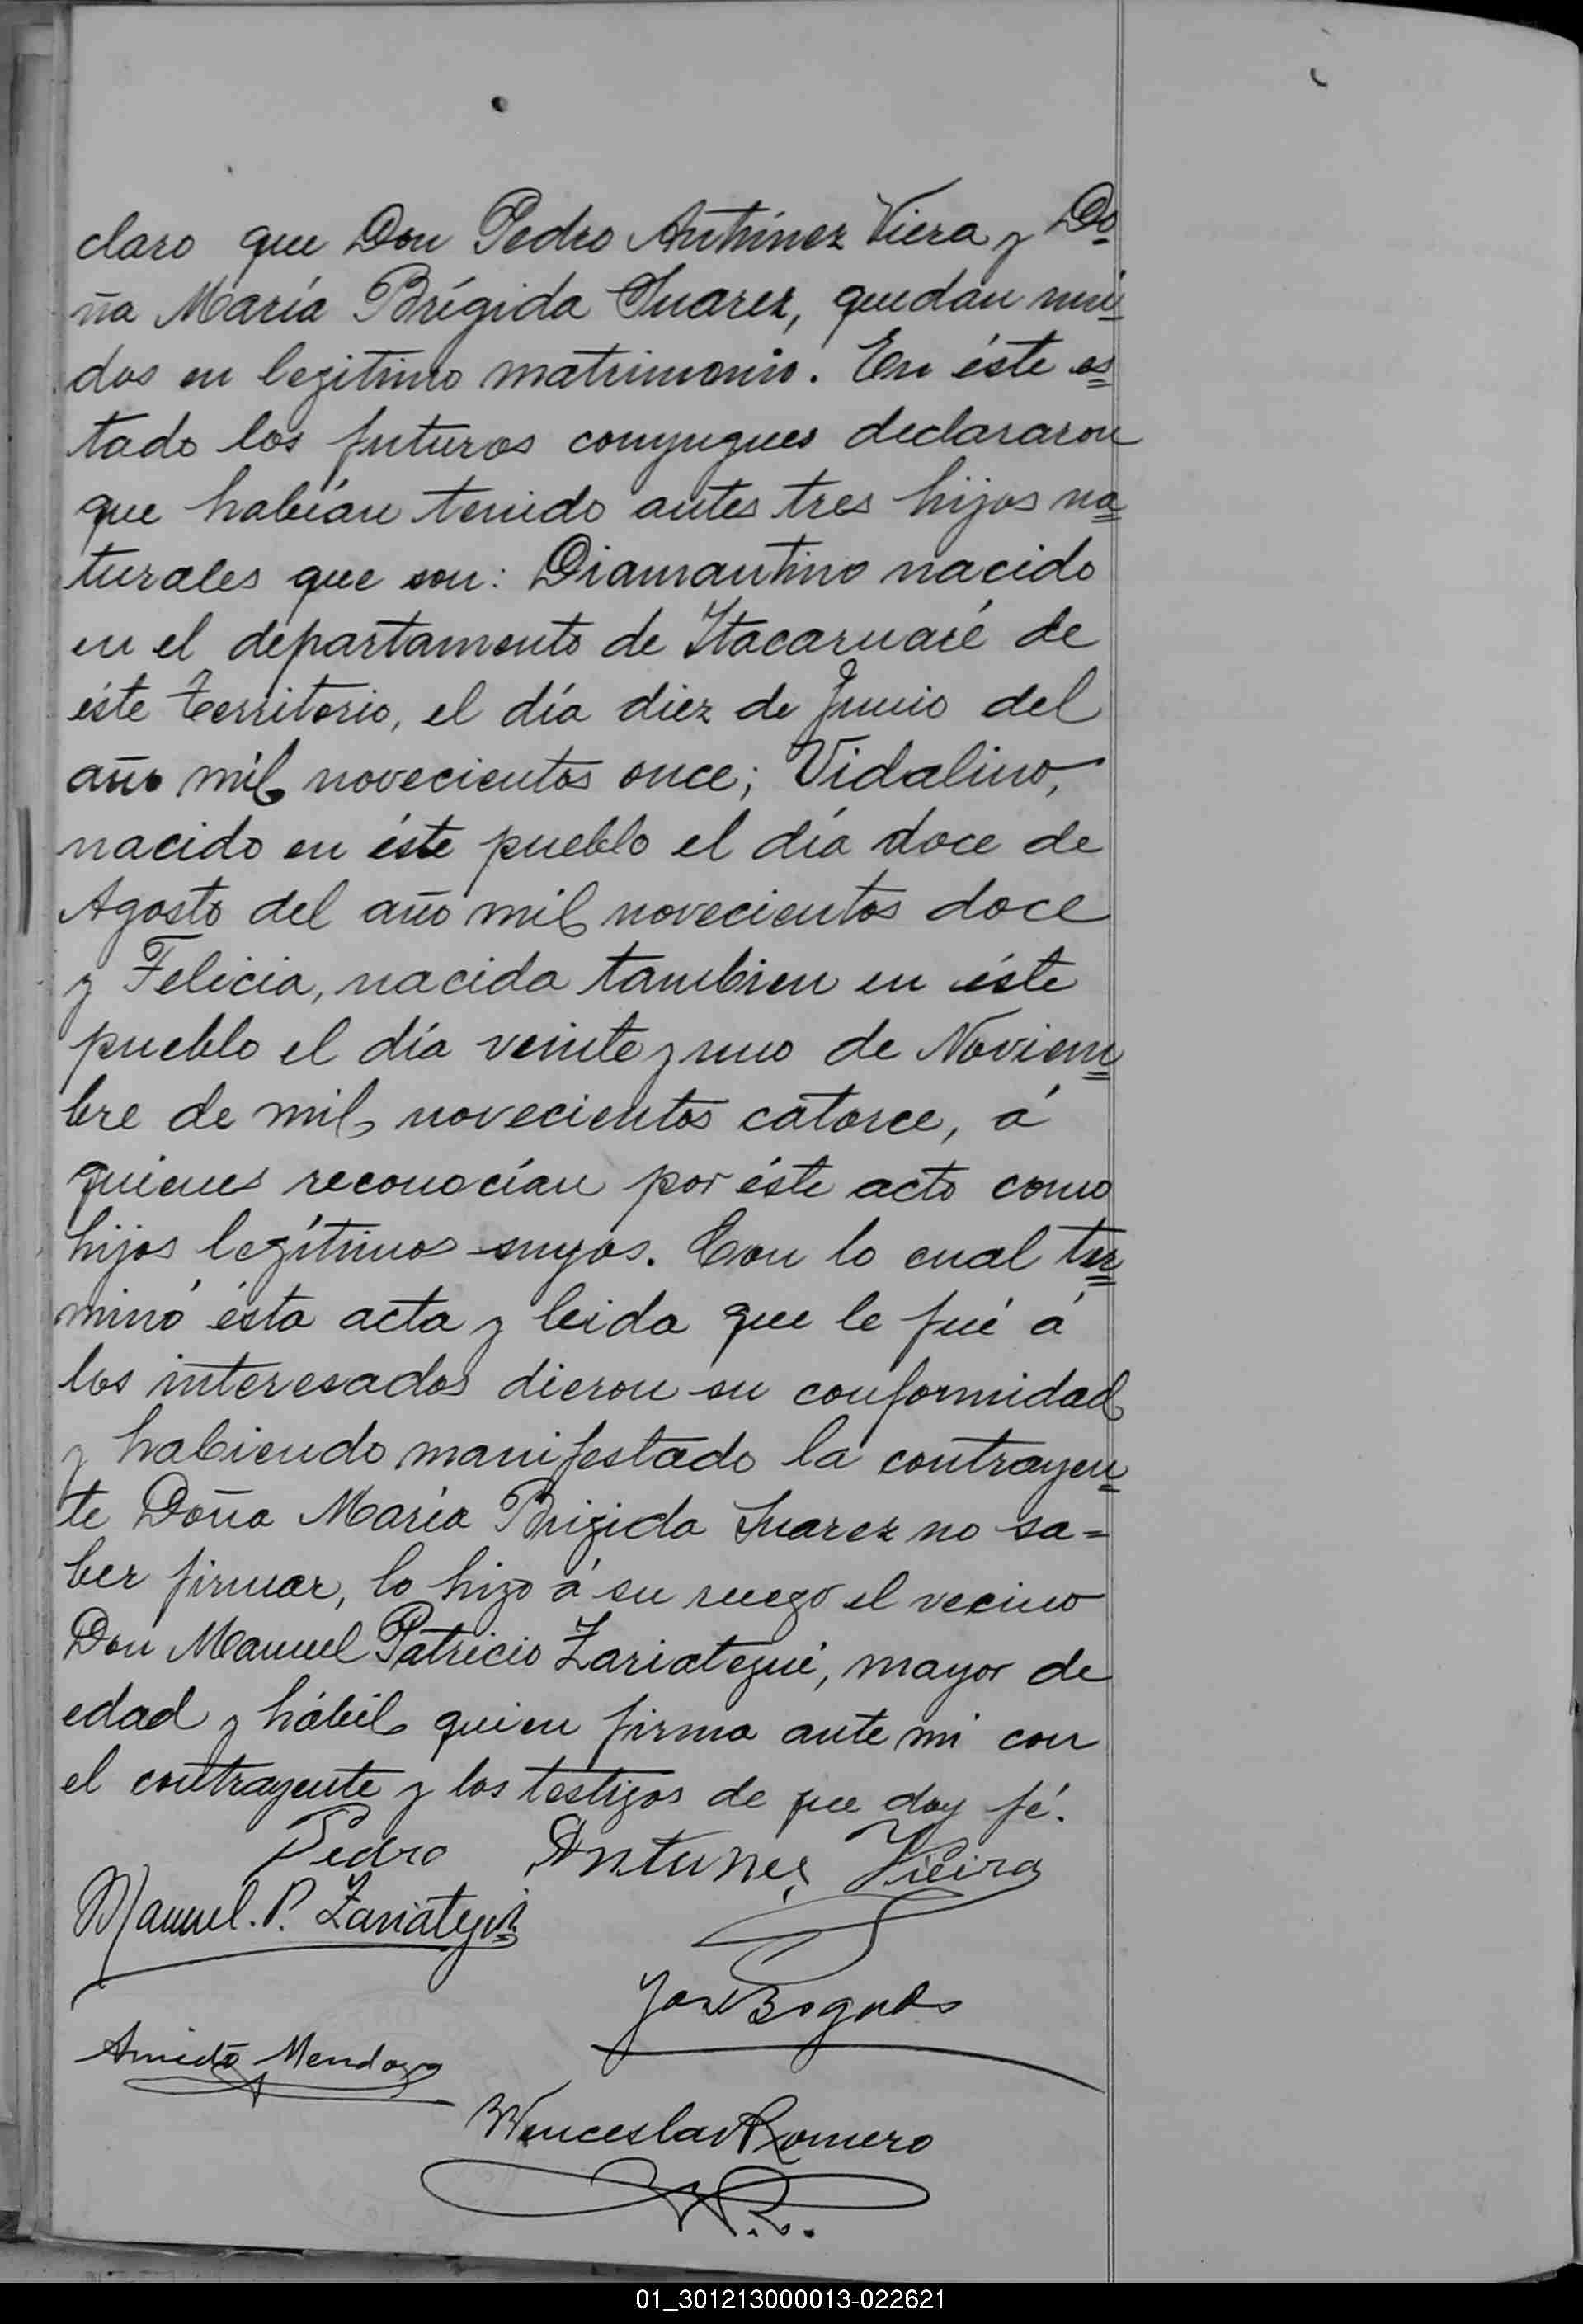 claro que Don Pedro Antúnez Viera y Do
ña María Brígida Suarez, quedan uni
dos en legitimo matrimonio. En éste es
tado los futuros conyugues declararon
que habían tenido antes tres hijos na
turales que son: Diamantino nacido
en el departamento de Itacaruaré de
éste territorio, el día diez de Junio del
año mil novecientos once; Vidalino,
nacido en éste pueblo el día doce de
Agosto del año mil novecientos doce
y Felicia, nacida tambien en éste
pueblo el día veinte y uno de Noviem
bre de mil novecientos catorce, á
quienes reconocían por éste acto como
hijos legítimos suyos. Con lo cual ter
minó ésta acta y leida que le fué á
los interesados dieron su conformidad
y habiendo manifestado la contrayen
te Doña María Brigida Suarez no sa=
ber firmar, lo hizo á su ruego el vecino
Don Manuel Patricio Zariategui, mayor de
edad y hábil quien firma ante mi con
el contrayente y los testigos de que doy fé.
Pedro Antunes Vieira
Manuel. P. Zariategui
José
Mendoza
Wenceslao Romero
W.R.
01_301213000013-022621